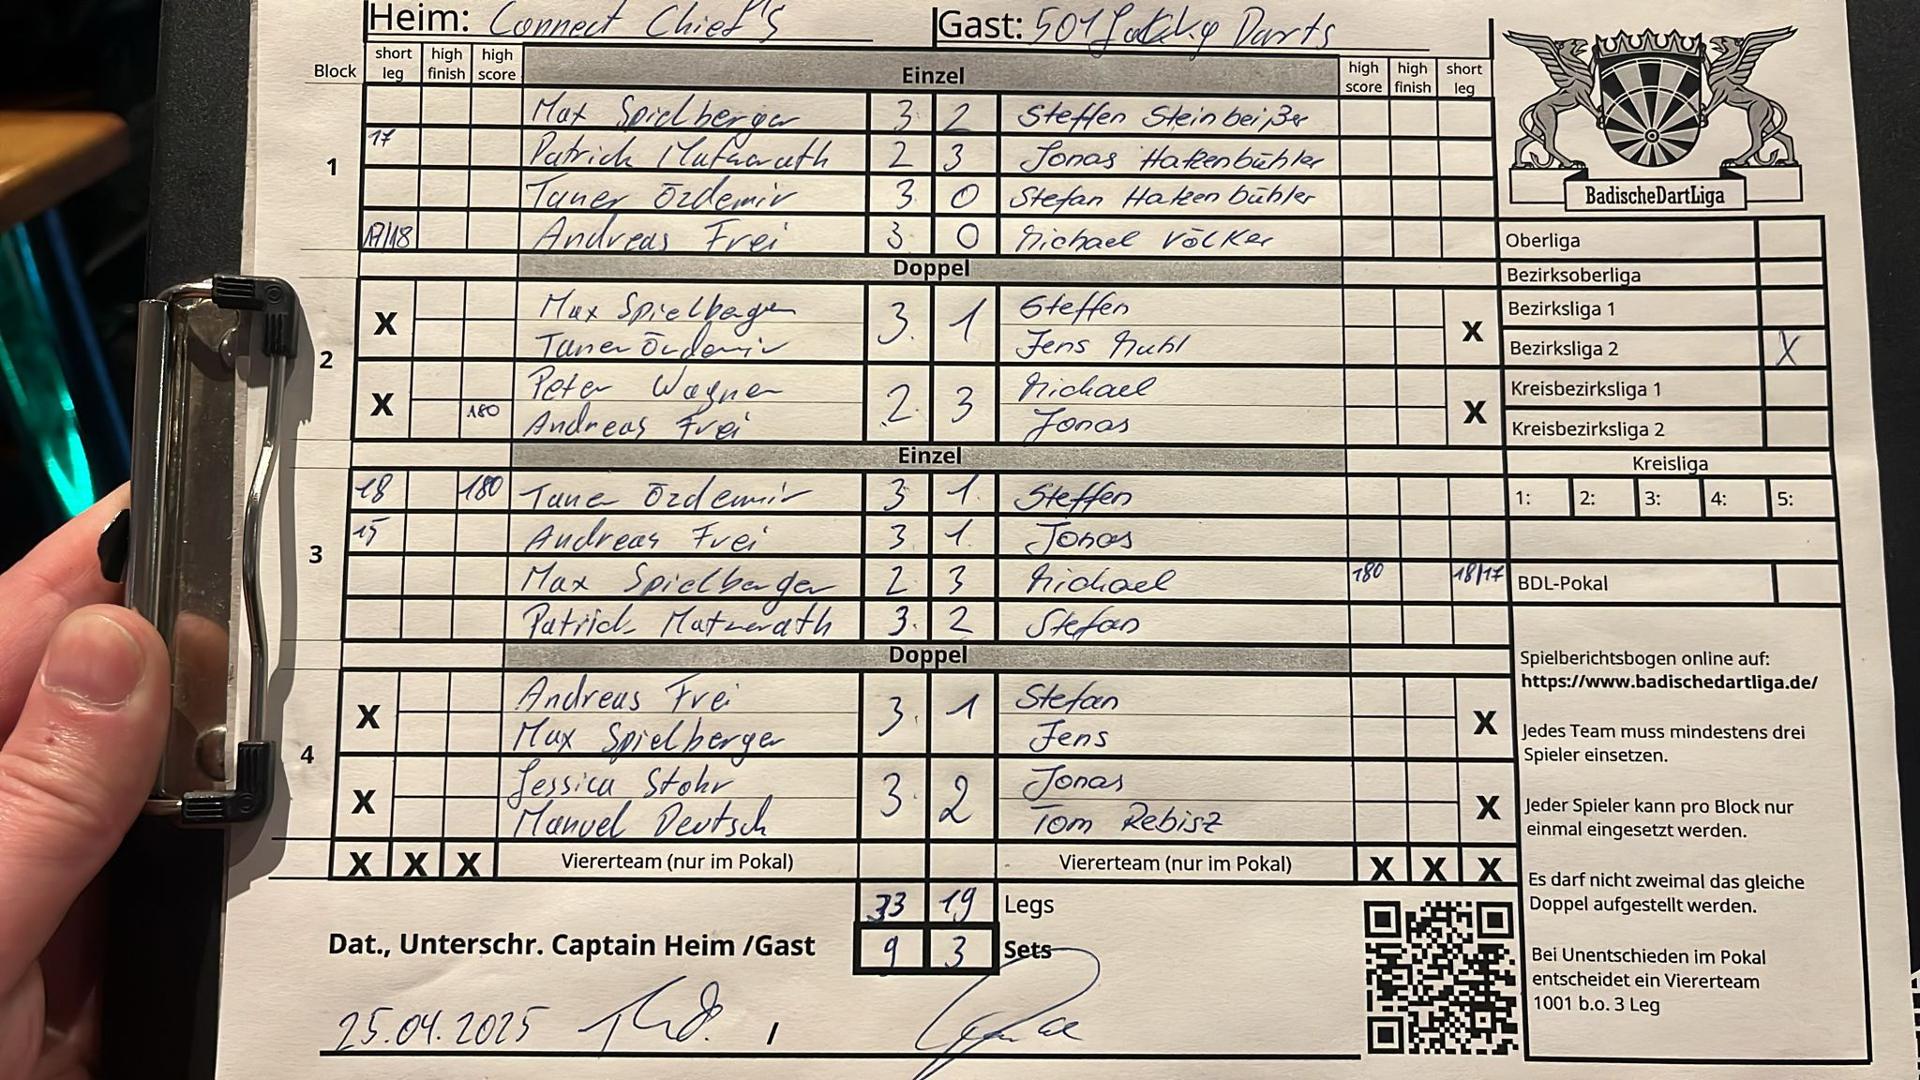 Heim: Connect Chief's Gast: 501 Darts
Block short leg high finish high score Einzel high score high finish short leg
Max Spielberger 3 2 Steffen Steinbeißer
1 17 Patrick Matzerath 2 3 Jonas Hatzenbühler
Taner Özdemir 3 0 Stefan Hatzenbühler
17/18 Andreas Frei 3 0 Michael Völker
Doppel
2 X Max Spielberger 3 1 Steffen X
Taner Özdemir Jens Muhl
X Peter Wagner 2 3 Michael X
180 Andreas Frei Jonas
Einzel
3 18 180 Taner Özdemir 3 1 Steffen
15 Andreas Frei 3 1 Jonas
Max Spielberger 2 3 Michael 180 18/17
Patrick Matzerath 3 2 Stefan
Doppel
4 X Andreas Frei 3 1 Stefan X
Max Spielberger Jens
X Jessica Stohr 3 2 Jonas X
Manuel Deutsch Tom Rebisz
X X X Viererteam (nur im Pokal) Viererteam (nur im Pokal) X X X
33 19 Legs
Dat., Unterschr. Captain Heim /Gast 9 3 Sets
25.04.2025 /
BadischeDartLiga
Oberliga
Bezirksoberliga
Bezirksliga 1
Bezirksliga 2 X
Kreisbezirksliga 1
Kreisbezirksliga 2
Kreisliga
1: 2: 3: 4: 5:
BDL-Pokal
Spielberichtsbogen online auf:
https://www.badischedartliga.de/
Jedes Team muss mindestens drei
Spieler einsetzen.
Jeder Spieler kann pro Block nur
einmal eingesetzt werden.
Es darf nicht zweimal das gleiche
Doppel aufgestellt werden.
Bei Unentschieden im Pokal
entscheidet ein Viererteam
1001 b.o. 3 Leg